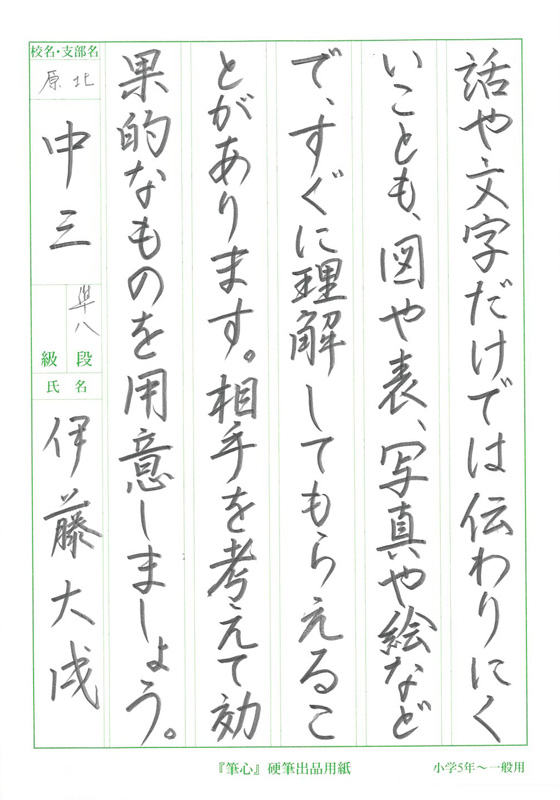 話や文字だけでは伝わりにく
いことも、図や表、写真や絵など
で、すぐに理解してもらえるこ
とがあります。相手を考えて効
果的なものを用意しましょう。
校名・支部名
原北
中三
準八
級 段
氏名
伊藤大成
『筆心』硬筆出品用紙
小学5年〜一般用